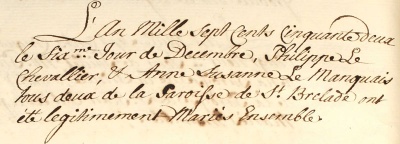 L'An Mille Sept Cents Cinquante deux
le Six.me Jour de Decembre, Philippe Le
Chevallier, & Anne Susanne Le Manquais
tous deux de la Paroisse de St. Brelade ont
été legitimement Mariés Ensemble.